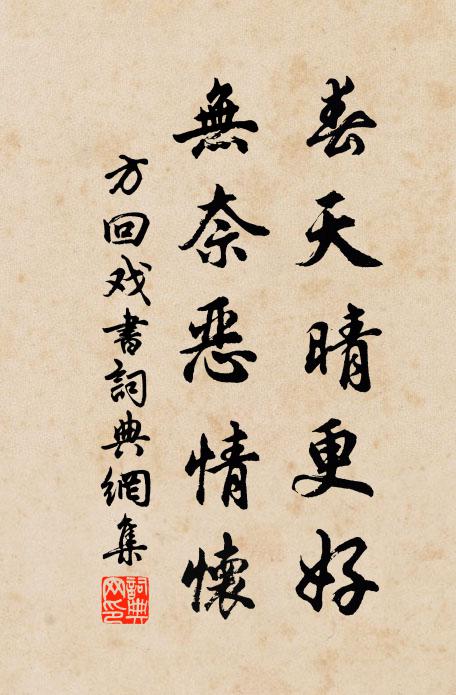 春天晴更好
無奈惡情懷
方回戏書詞典網集
詞典網印